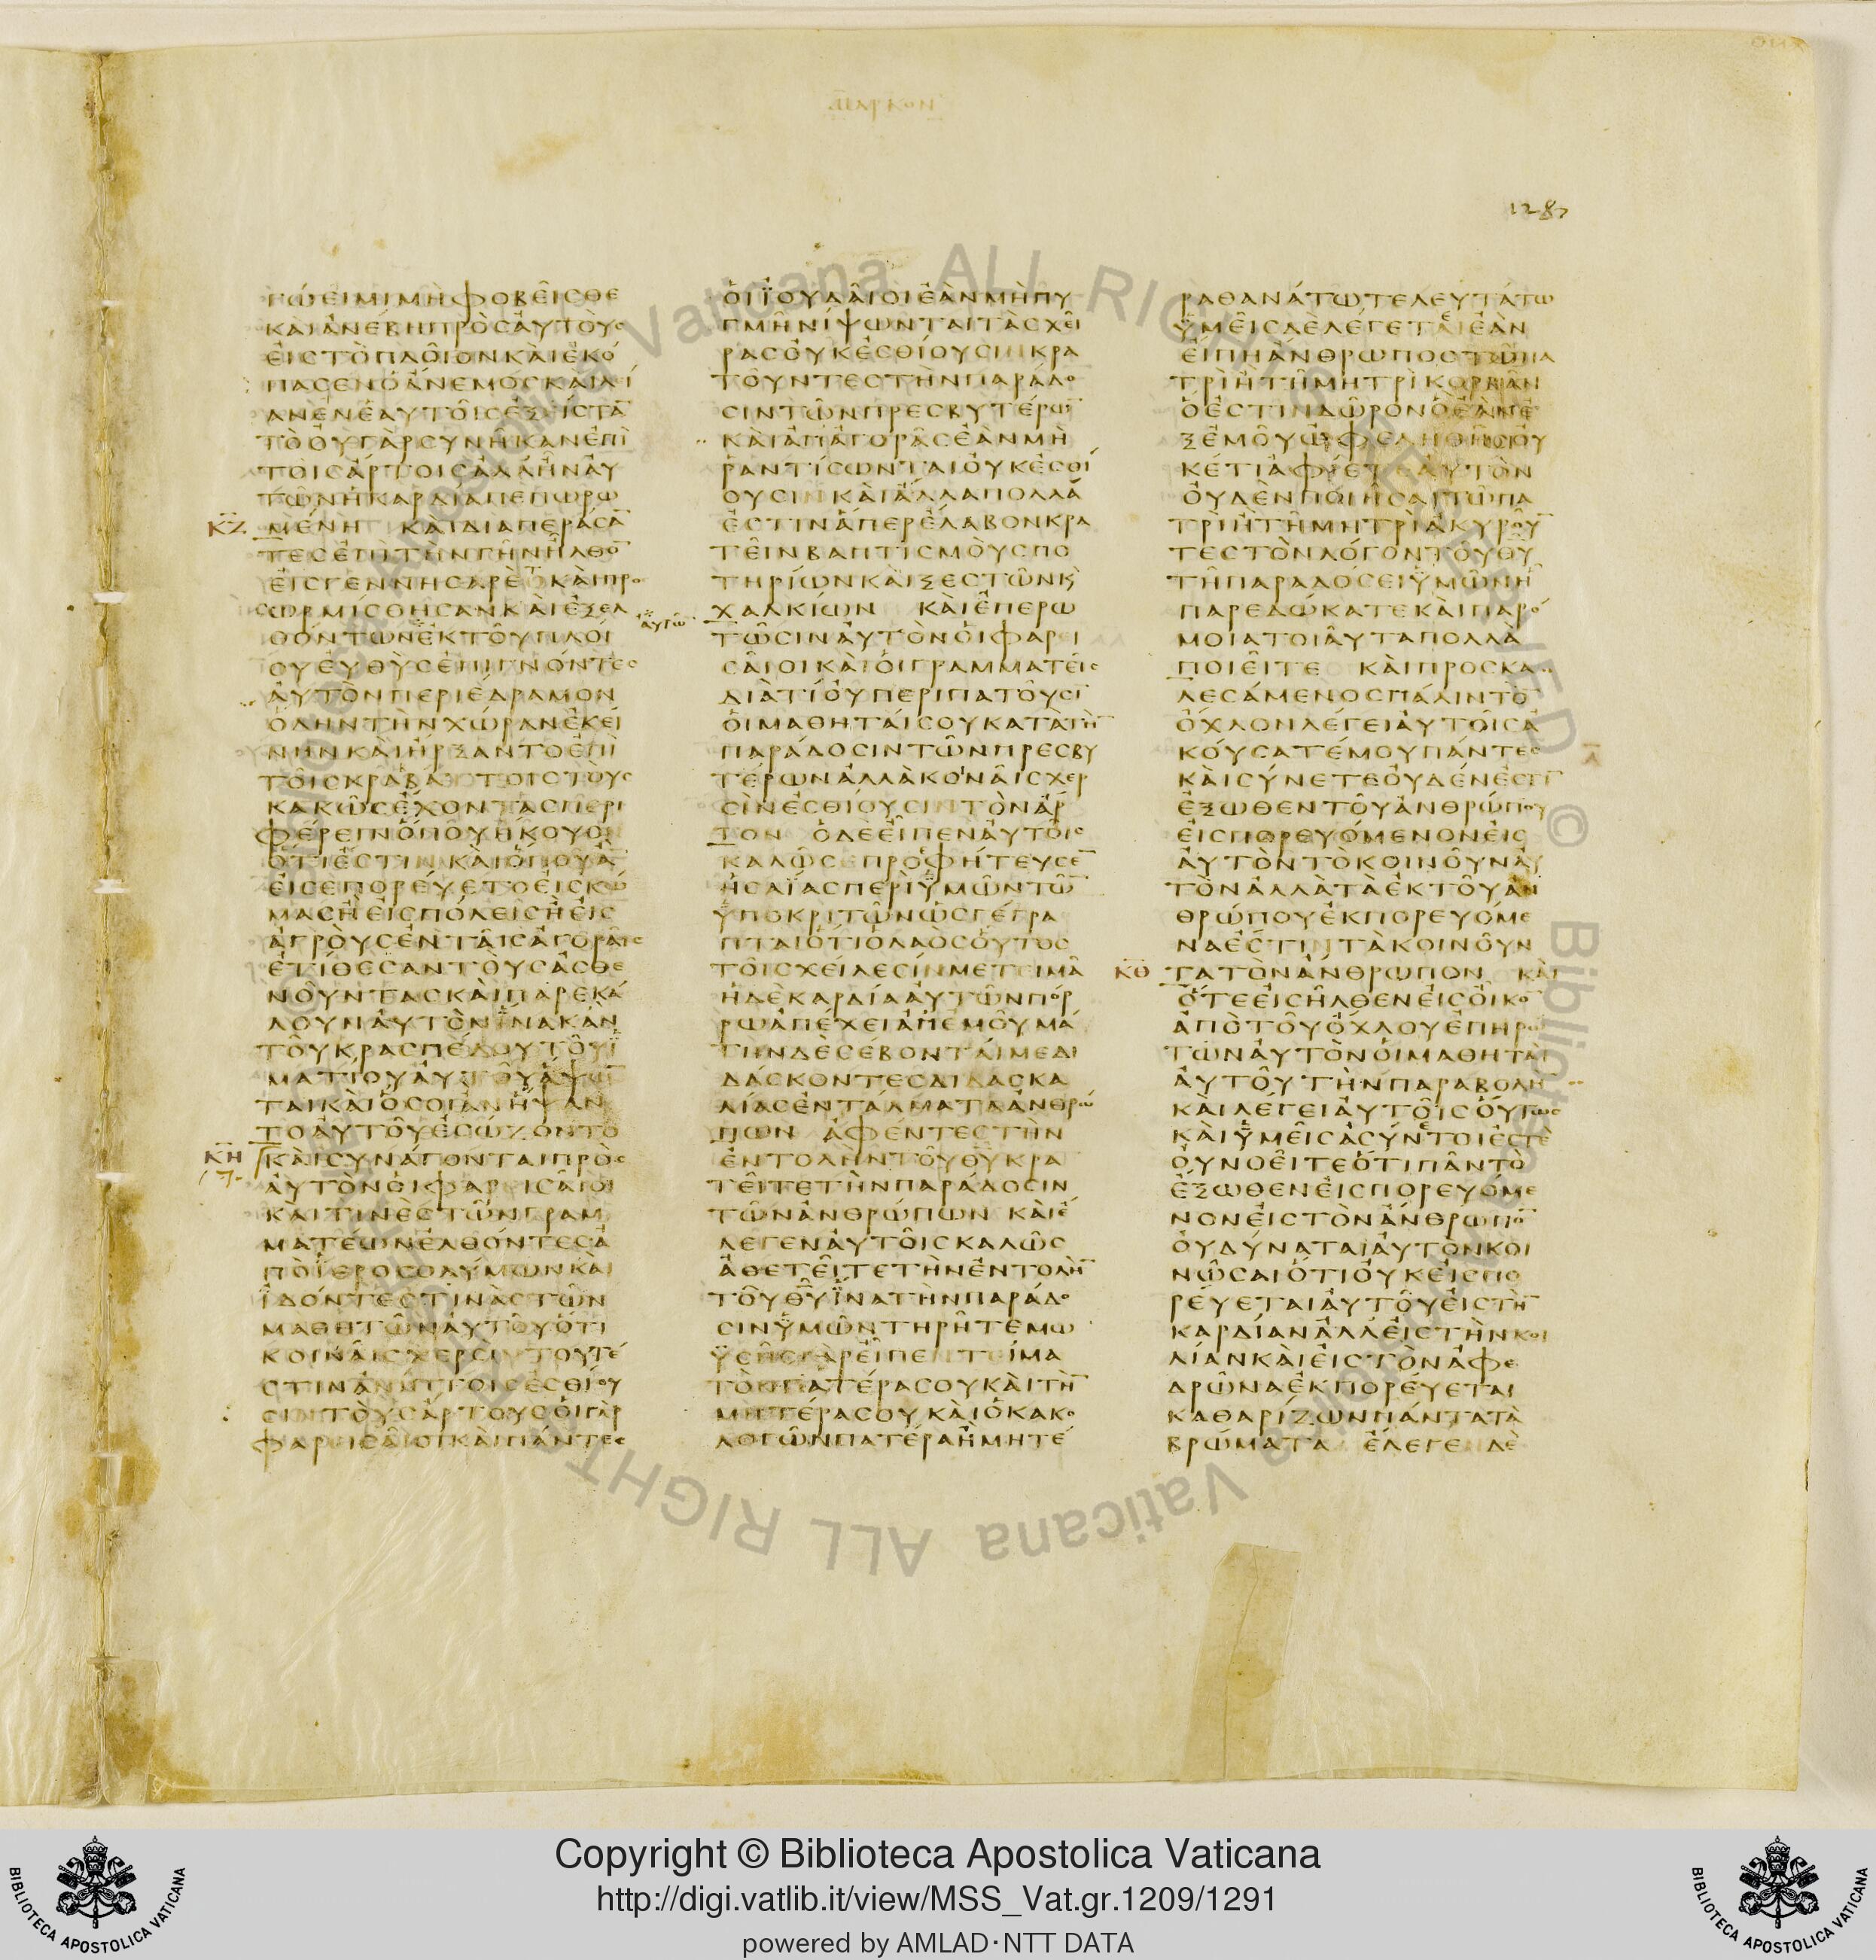 μαρκον
1287
ΓΩΕΙΜΙΜΗΦΟΒΕΙΣΘΕ
ΚΑΙΑΝΕΒΗΠΡΟΣΑΥΤΟΥΣ
ΕΙΣΤΟΠΛΟΙΟΝΚΑΙΕΚΟ
ΠΑΣΕΝΟΑΝΕΜΟΣΚΑΙΛΕΙ
ΑΝΕΝΕΑΥΤΟΙΣΕΞΙΣΤΑ̅
ΤΟΟΥΓΑΡΣΥΝΗΚΑΝΕΠΙ
ΤΟΙΣΑΡΤΟΙΣΑΛΛΗΝΑΥ
ΤΩΝΗΚΑΡΔΙΑΠΕΠΩΡΩ
ΚΖ ΜΕΝΗ ΚΑΙΔΙΑΠΕΡΑΣΑ̅
ΤΕΣΕΠΙΤΗΝΓΗΝΗΛΘΟ̅
ΕΙΣΓΕΝΝΗΣΑΡΕΤΚΑΙΠΡΟ
ΣΩΡΜΙΣΘΗΣΑΝΚΑΙΕΞΕΛ
ΘΟΝΤΩΝΑΥΤΩ̅ΕΚΤΟΥΠΛΟΙ
ΟΥΕΥΘΥΣΕΠΙΓΝΟΝΤΕΣ
ΑΥΤΟΝΠΕΡΙΕΔΡΑΜΟΝ
ΟΛΗΝΤΗΝΧΩΡΑΝΕΚΕΙ
ΝΗΝΚΑΙΗΡΞΑΝΤΟΕΠΙ
ΤΟΙΣΚΡΑΒΑΤΤΟΙΣΤΟΥΣ
ΚΑΚΩΣΕΧΟΝΤΑΣΠΕΡΙ
ΦΕΡΕΙΝΟΠΟΥΗΚΟΥΟ̅
ΟΤΙΕΣΤΙΝΚΑΙΟΠΟΥΑ̅
ΕΙΣΕΠΟΡΕΥΕΤΟΕΙΣΚΩ
ΜΑΣΗΕΙΣΠΟΛΕΙΣΗΕΙΣ
ΑΓΡΟΥΣΕΝΤΑΙΣΑΓΟΡΑΙΣ
ΕΤΙΘΕΣΑΝΤΟΥΣΑΣΘΕ
ΝΟΥΝΤΑΣΚΑΙΠΑΡΕΚΑ
ΛΟΥΝΑΥΤΟΝΙΝΑΚΑΝ
ΤΟΥΚΡΑΣΠΕΔΟΥΤΟΥΙ
ΜΑΤΙΟΥΑΥΤΟΥΑΨΩ̅
ΤΑΙΚΑΙΟΣΟΙΑΝΗΨΑΝ
ΤΟΑΥΤΟΥΕΣΩΖΟΝΤΟ
ΚΗ ΚΑΙΣΥΝΑΓΟΝΤΑΙΠΡΟΣ
ΑΥΤΟΝΟΙΦΑΡΕΙΣΑΙΟΙ
ΚΑΙΤΙΝΕΣΤΩΝΓΡΑΜ
ΜΑΤΕΩΝΕΛΘΟΝΤΕΣΑ
ΠΟΙΕΡΟΣΟΛΥΜΩΝΚΑΙ
ΙΔΟΝΤΕΣΤΙΝΑΣΤΩΝ
ΜΑΘΗΤΩΝΑΥΤΟΥΟΤΙ
ΚΟΙΝΑΙΣΧΕΡΣΙΝΤΟΥΤΕ
ΣΤΙΝΑΝΙΠΤΟΙΣΕΣΘΙΟΥ
ΣΙΝΤΟΥΣΑΡΤΟΥΣΟΙΓΑΡ
ΦΑΡΕΙΣΑΙΟΙΚΑΙΠΑΝΤΕΣ
ΟΙΙΟΥΔΑΙΟΙΕΑΝΜΗΠΥ
ΓΜΗΝΙΨΩΝΤΑΙΤΑΣΧΕΙ
ΡΑΣΟΥΚΕΣΘΙΟΥΣΙΝΚΡΑ
ΤΟΥΝΤΕΣΤΗΝΠΑΡΑΔΟ
ΣΙΝΤΩΝΠΡΕΣΒΥΤΕΡΩ̅
ΚΑΙΑΠΑΓΟΡΑΣΕΑΝΜΗ
ΡΑΝΤΙΣΩΝΤΑΙΟΥΚΕΣΘΙ
ΟΥΣΙΝΚΑΙΑΛΛΑΠΟΛΛΑ
ΕΣΤΙΝΑΠΕΡΕΛΑΒΟΝΚΡΑ
ΤΕΙΝΒΑΠΤΙΣΜΟΥΣΠΟ
ΤΗΡΙΩΝΚΑΙΞΕΣΤΩΝΚ
ΧΑΛΚΙΩΝ ΚΑΙΕΠΕΡΩ
ΤΩΣΙΝΑΥΤΟΝΟΙΦΑΡΕΙ
ΣΑΙΟΙΚΑΙΟΙΓΡΑΜΜΑΤΕΙΣ
ΔΙΑΤΙΟΥΠΕΡΙΠΑΤΟΥΣΙ̅
ΟΙΜΑΘΗΤΑΙΣΟΥΚΑΤΑΤΗ̅
ΠΑΡΑΔΟΣΙΝΤΩΝΠΡΕΣΒΥ
ΤΕΡΩΝΑΛΛΑΚΟΙΝΑΙΣΧΕΡ
ΣΙΝΕΣΘΙΟΥΣΙΝΤΟΝΑΡ
ΤΟΝ ΟΔΕΕΙΠΕΝΑΥΤΟΙΣ
ΚΑΛΩΣΕΠΡΟΦΗΤΕΥΣΕ̅
ΗΣΑΙΑΣΠΕΡΙΥΜΩΝΤΩ̅
ΥΠΟΚΡΙΤΩΝΩΣΓΕΓΡΑ
ΠΤΑΙΟΤΙΟΛΑΟΣΟΥΤΟΣ
ΤΟΙΣΧΕΙΛΕΣΙΝΜΕΤΕΙΜΑ
ΗΔΕΚΑΡΔΙΑΑΥΤΩΝΠΟΡ
ΡΩΑΠΕΧΕΙΑΠΕΜΟΥΜΑ
ΤΗΝΔΕΣΕΒΟΝΤΑΙΜΕΔΙ
ΔΑΣΚΟΝΤΕΣΔΙΔΑΣΚΑ
ΛΙΑΣΕΝΤΑΛΜΑΤΑΑΝΘΡΩ
ΠΩΝ ΑΦΕΝΤΕΣΤΗΝ
ΕΝΤΟΛΗΝΤΟΥΘΥΚΡΑ
ΤΕΙΤΕΤΗΝΠΑΡΑΔΟΣΙΝ
ΤΩΝΑΝΘΡΩΠΩΝ ΚΑΙΕ
ΛΕΓΕΝΑΥΤΟΙΣΚΑΛΩΣ
ΑΘΕΤΕΙΤΕΤΗΝΕΝΤΟΛΗ̅
ΤΟΥΘΥΙΝΑΤΗΝΠΑΡΑΔΟ
ΣΙΝΥΜΩΝΤΗΡΗΤΕΜΩ
ΥΣΗΣΓΑΡΕΙΠΕΝΤΕΙΜΑ
ΤΟΝΠΑΤΕΡΑΣΟΥΚΑΙΤΗ̅
ΜΗΤΕΡΑΣΟΥΚΑΙΟΚΑΚΟ
ΛΟΓΩΝΠΑΤΕΡΑΗΜΗΤΕ
ΡΑΘΑΝΑΤΩΤΕΛΕΥΤΑΤΩ
ΥΜΕΙΣΔΕΛΕΓΕΤΑΙΕΑΝ
ΕΙΠΗΑΝΘΡΩΠΟΣΤΩΠΑ
ΤΡΙΗΤΗΜΗΤΡΙΚΟΡΒΑΝ
ΟΕΣΤΙΝΔΩΡΟΝΟΕΑΝΕ
ΞΕΜΟΥΩΦΕΛΗΘΗΣΟΥ
ΚΕΤΙΑΦΙΕΤΕΑΥΤΟΝ
ΟΥΔΕΝΠΟΙΗΣΑΙΤΩΠΑ
ΤΡΙΗΤΗΜΗΤΡΙΑΚΥΡΟΥ̅
ΤΕΣΤΟΝΛΟΓΟΝΤΟΥΘΥ
ΤΗΠΑΡΑΔΟΣΕΙΥΜΩΝΗ
ΠΑΡΕΔΩΚΑΤΕΚΑΙΠΑΡΟ
ΜΟΙΑΤΟΙΑΥΤΑΠΟΛΛΑ
ΠΟΙΕΙΤΕ ΚΑΙΠΡΟΣΚΑ
ΛΕΣΑΜΕΝΟΣΠΑΛΙΝΤΟ̅
ΟΧΛΟΝΛΕΓΕΙΑΥΤΟΙΣΑ
ΚΟΥΣΑΤΕΜΟΥΠΑΝΤΕΣ
ΚΑΙΣΥΝΕΤΕΟΥΔΕΝΕΣΤΙ̅
ΕΞΩΘΕΝΤΟΥΑΝΘΡΩΠΟΥ
ΕΙΣΠΟΡΕΥΟΜΕΝΟΝΕΙΣ
ΑΥΤΟΝΤΟΚΟΙΝΟΥΝΑΥ
ΤΟΝΑΛΛΑΤΑΕΚΤΟΥΑΝ
ΘΡΩΠΟΥΕΚΠΟΡΕΥΟΜΕ
ΝΑΕΣΤΙΝΤΑΚΟΙΝΟΥΝ
ΚΘ ΤΑΤΟΝΑΝΘΡΩΠΟΝ ΚΑΙ
ΟΤΕΕΙΣΗΛΘΕΝΕΙΣΟΙΚΟ̅
ΑΠΟΤΟΥΟΧΛΟΥΕΠΗΡΩ
ΤΩΝΑΥΤΟΝΟΙΜΑΘΗΤΑΙ
ΑΥΤΟΥΤΗΝΠΑΡΑΒΟΛΗ̅
ΚΑΙΛΕΓΕΙΑΥΤΟΙΣΟΥΤΩΣ
ΚΑΙΥΜΕΙΣΑΣΥΝΕΤΟΙΕΣΤΕ
ΟΥΝΟΕΙΤΕΟΤΙΠΑΝΤΟ
ΕΞΩΘΕΝΕΙΣΠΟΡΕΥΟΜΕ
ΝΟΝΕΙΣΤΟΝΑΝΘΡΩΠΟ̅
ΟΥΔΥΝΑΤΑΙΑΥΤΟΝΚΟΙ
ΝΩΣΑΙΟΤΙΟΥΚΕΙΣΠΟ
ΡΕΥΕΤΑΙΑΥΤΟΥΕΙΣΤΗ̅
ΚΑΡΔΙΑΝΑΛΛΕΙΣΤΗΝΚΟΙ
ΛΙΑΝΚΑΙΕΙΣΤΟΝΑΦΕ
ΔΡΩΝΑΕΚΠΟΡΕΥΕΤΑΙ
ΚΑΘΑΡΙΖΩΝΠΑΝΤΑΤΑ
ΒΡΩΜΑΤΑ ΕΛΕΓΕΝΔΕ
Biblioteca Apostolica Vaticana ALL RIGHTS RESERVED ©
Copyright © Biblioteca Apostolica Vaticana
http://digi.vatlib.it/view/MSS_Vat.gr.1209/1291
powered by AMLAD·NTT DATA
BIBLIOTECA APOSTOLICA VATICANA
BIBLIOTECA APOSTOLICA VATICANA